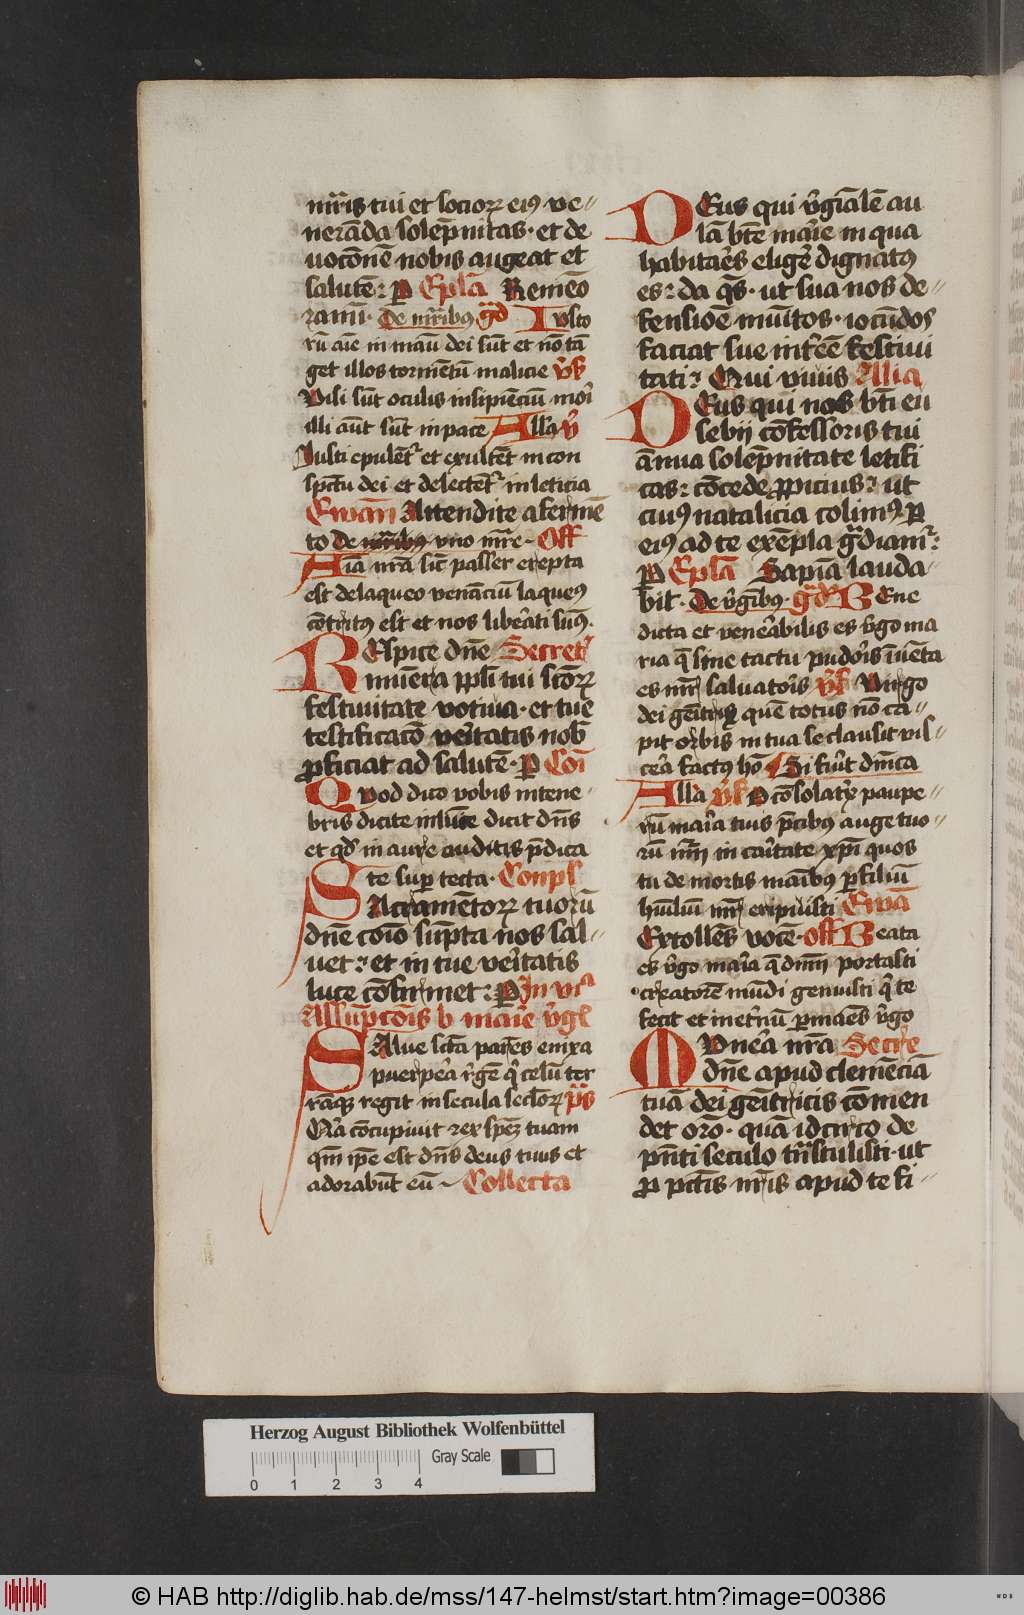 mr̄is tui et socioꝝ eiꝰ ve⸗
nerāda solēpnitas · et de
uocōnē nobis augeat et
salutē : ꝑ Eplā Remēo
ramī · De mr̄ibus gͣd Iusto
rū aīe in manu dei sūt et nō tā
get illos tormētū malicie v̄ß
Visi sūt oculis insipiēciū mori
illi aūt sūt in pace Alla v̄
Iusti epulēt̄ et exultēt in con
spctu dei et delectēt̄ in leticia
Ewān Attendite a fermē
to de mr̄ibus vno mr̄e · Off
Aīa nr̄a sic̄ passer erepta
est de laqueo venāciū laqueꝰ
cōtritꝰ est et nos liberati sumꝰ ·
REspice dn̄e Secret
munera ppl̄i tui scōꝝ
festiuitate votiua · et tue
testificacō veritatis nob̄
ꝓficiat ad salutē · ꝑ Cōi
Quod dico vobis in tene⸗
bris dicite in lumīe dicit dn̄s
et qd̄ in aure auditis p̄dica
te suꝑ tecta · Conpl̄
SAcramētoꝝ tuorū
dn̄e cōio sūpta nos sal⸗
uet : et in tue veritatis
luce cōfirmet : ꝑ In viͣ
Assūpcōis b marie v̄gͥ
SAlue scā parēs enixa
puerpera rēgē qͥ celū ter
rāqꝫ regit in secula sec̄loꝝ p̄s
Qr̄ cōcupiuit rex spēꝫ tuam
qm̄ ip̄e est dn̄s deus tuus et
adorabūt eū ~ Collecta
DEus qui v̄ginalē au
lā bt̄e marie in qua
habitarēs eligere dignatꝰ
es : da qs̄ · ut sua nos de⸗
fensiōe munitos · iocūdos
faciat sue int̄ēē festiui
tati : Qui viuis Alīa
DEus qui nos bt̄i eu
sebij cōfessoris tui
ānua solēpnitate letifi
cas : cōcede ꝓpicius : ut
cuiꝰ natalicia colimꝰ ꝑ
eiꝰ ad te exēpla gͣdiamͬ :
ꝑ Eplā Sapiā lauda⸗
bit · De v̄gībus · gͣdͣ Bene
dicta et venerabilis es v̄go ma
ria q̄ sine tactu pudoris īuēta
es mr̄ saluatoris v̄ß Virgo
dei gēitrix quē totus nō ca⸗
pit orbis in tua se clausit vis⸗
cera factus hō Si fu̅it dn̄ica
Alla v̄ß O cōsolatrix paupe⸗
rū maria tuis p̄cibus auge tuo⸗
rū in caritate xp̄i quos
tu de mortis manibus ꝑ filiū
hūiliū mr̄ eripuisti Ewā
Extollēs vocē · off Beata
es v̄go maria q̄ dn̄m portasti
creatorē mūdi genuisti qͥ te
fecit et in et̄nū ꝑmanēs v̄go
MVnera nr̄a Secre
dn̄e apud clemēciā
tuā dei gēitricis cōmen
det oro · quā idcirco de
pn̄ti seculo tn̄stulisti · ut
ꝓ pctis nr̄is apud te fi⸗
Herzog August Bibliothek Wolfenbüttel
Gray Scale
0 1 2 3 4
© HAB http://diglib.hab.de/mss/147-helmst/start.htm?image=00386